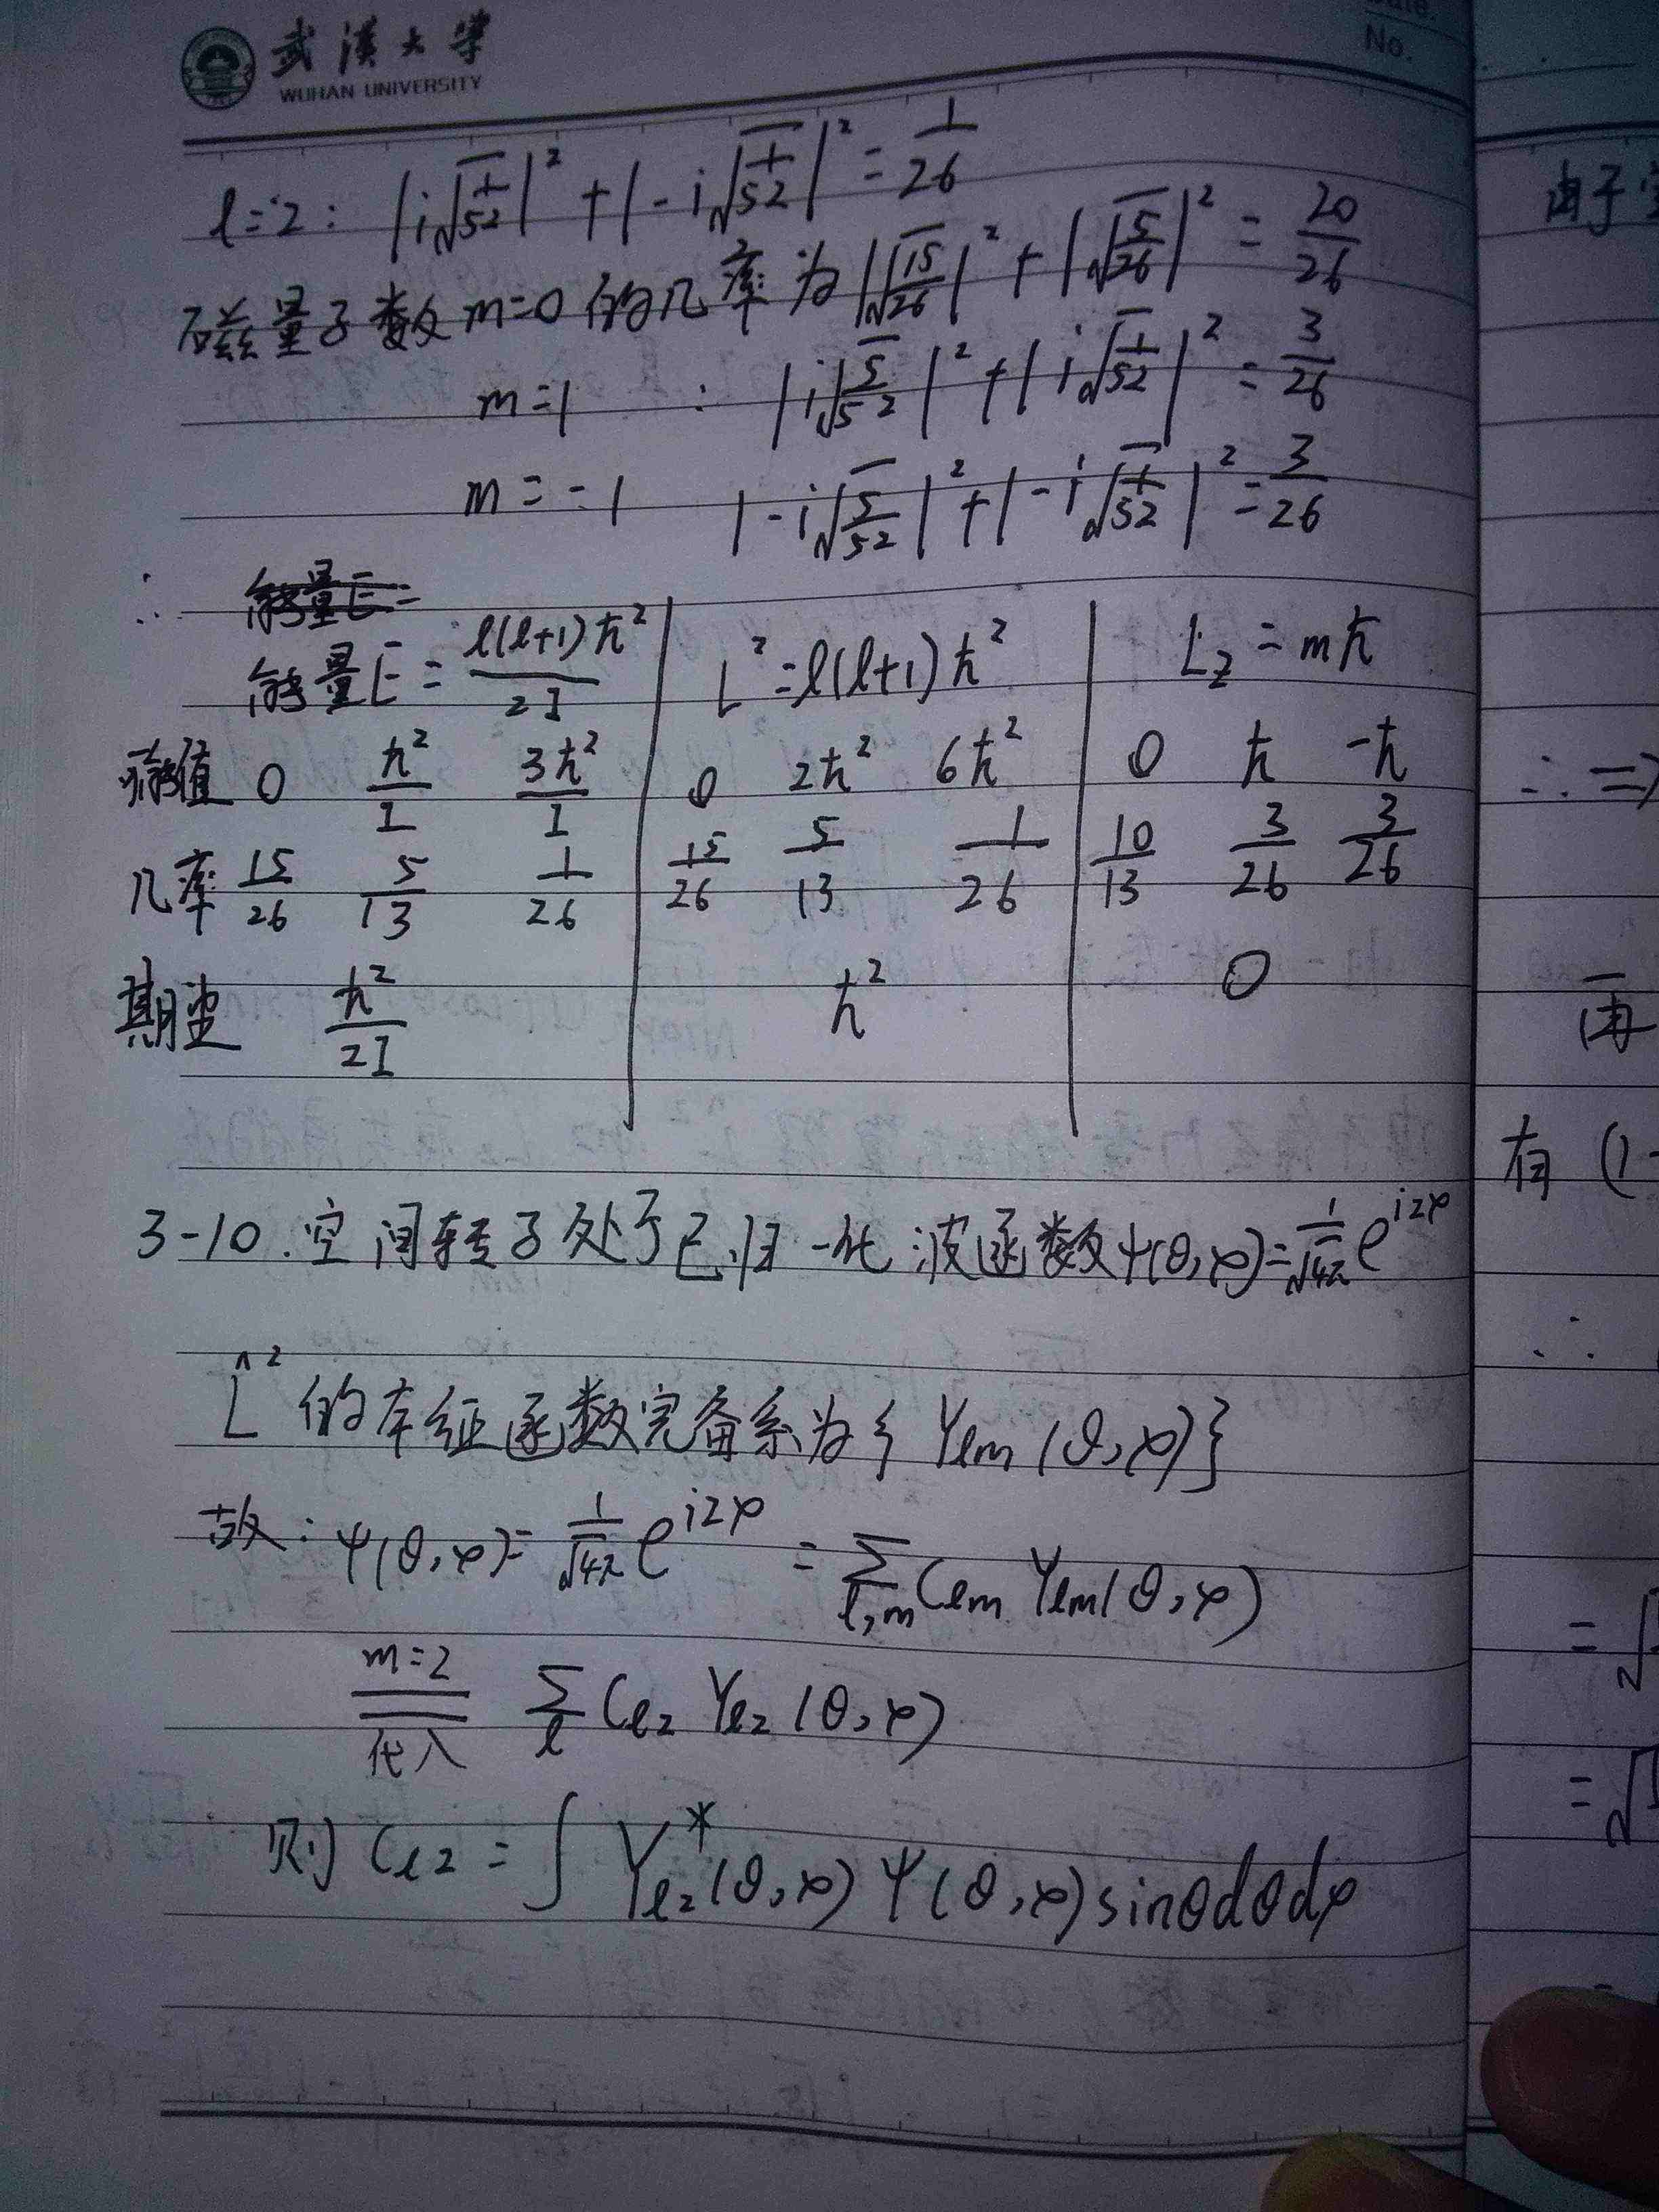 武汉大学
WUHAN UNIVERSITY
No.
l=2: |i√(1/52)|² + |-i√(1/52)|² = 1/26
磁量子数m=0的几率为|√(15/26)|² + |√(5/26)|² = 20/26
m=1 : |i√(5/52)|² + |i√(1/52)|² = 3/26
m=-1 |-i√(5/52)|² + |-i√(1/52)|² = 3/26
∴ 能量E=
能量E = l(l+1)ħ²/2I | L² = l(l+1)ħ² | L_z = mħ
值 0 ħ²/I 3ħ²/I | 0 2ħ² 6ħ² | 0 ħ -ħ
几率 15/26 5/13 1/26 | 15/26 5/13 1/26 | 10/13 3/26 3/26
期望 ħ²/2I | ħ² | 0
3-10. 空间转子处于已归一化波函数ψ(θ,φ)=1/√4π e^{i2φ}
L̂² 的本征函数完备系为{Y_lm(θ,φ)}
故: ψ(θ,φ) = 1/√4π e^{i2φ} = Σ_{l,m} C_lm Y_lm(θ,φ)
m=2
代入
Σ_l C_l2 Y_l2(θ,φ)
则 C_l2 = ∫ Y*_l2(θ,φ) ψ(θ,φ) sinθdθdφ
由于
∴ ⇒
再
有 (1-
∴
= √
= √